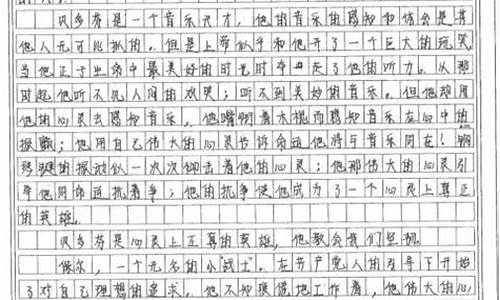 贝多芬是一个音乐天才,他的音乐的感知和体会是常
他人无可比拟的。但是上帝似乎和他开了一个巨大的玩笑
当他正于生命中最美好的时光时夺走了他的听力。从那
时起他听不见人间的欢笑;听不到美妙的音乐。但他却用
他的心灵去感知音乐,他嘴咬着木棍而感知音乐在心中的
振颤;他用自己伟大的心灵告诉命运他将与音乐同在!钢
琴键的振动似一次次叩击着他的心灵;他那伟大的心灵引
导他同命运抗着争;他的抗争使他成为了一个心灵上真正
的英雄。
贝多芬是心灵上正真的英雄,他教会我们坚韧。
保尔,一个无名的小"战士"。在共产党人的引导下开始
了对自己理想的追求。他不知疲倦地工作着,他伟大的心